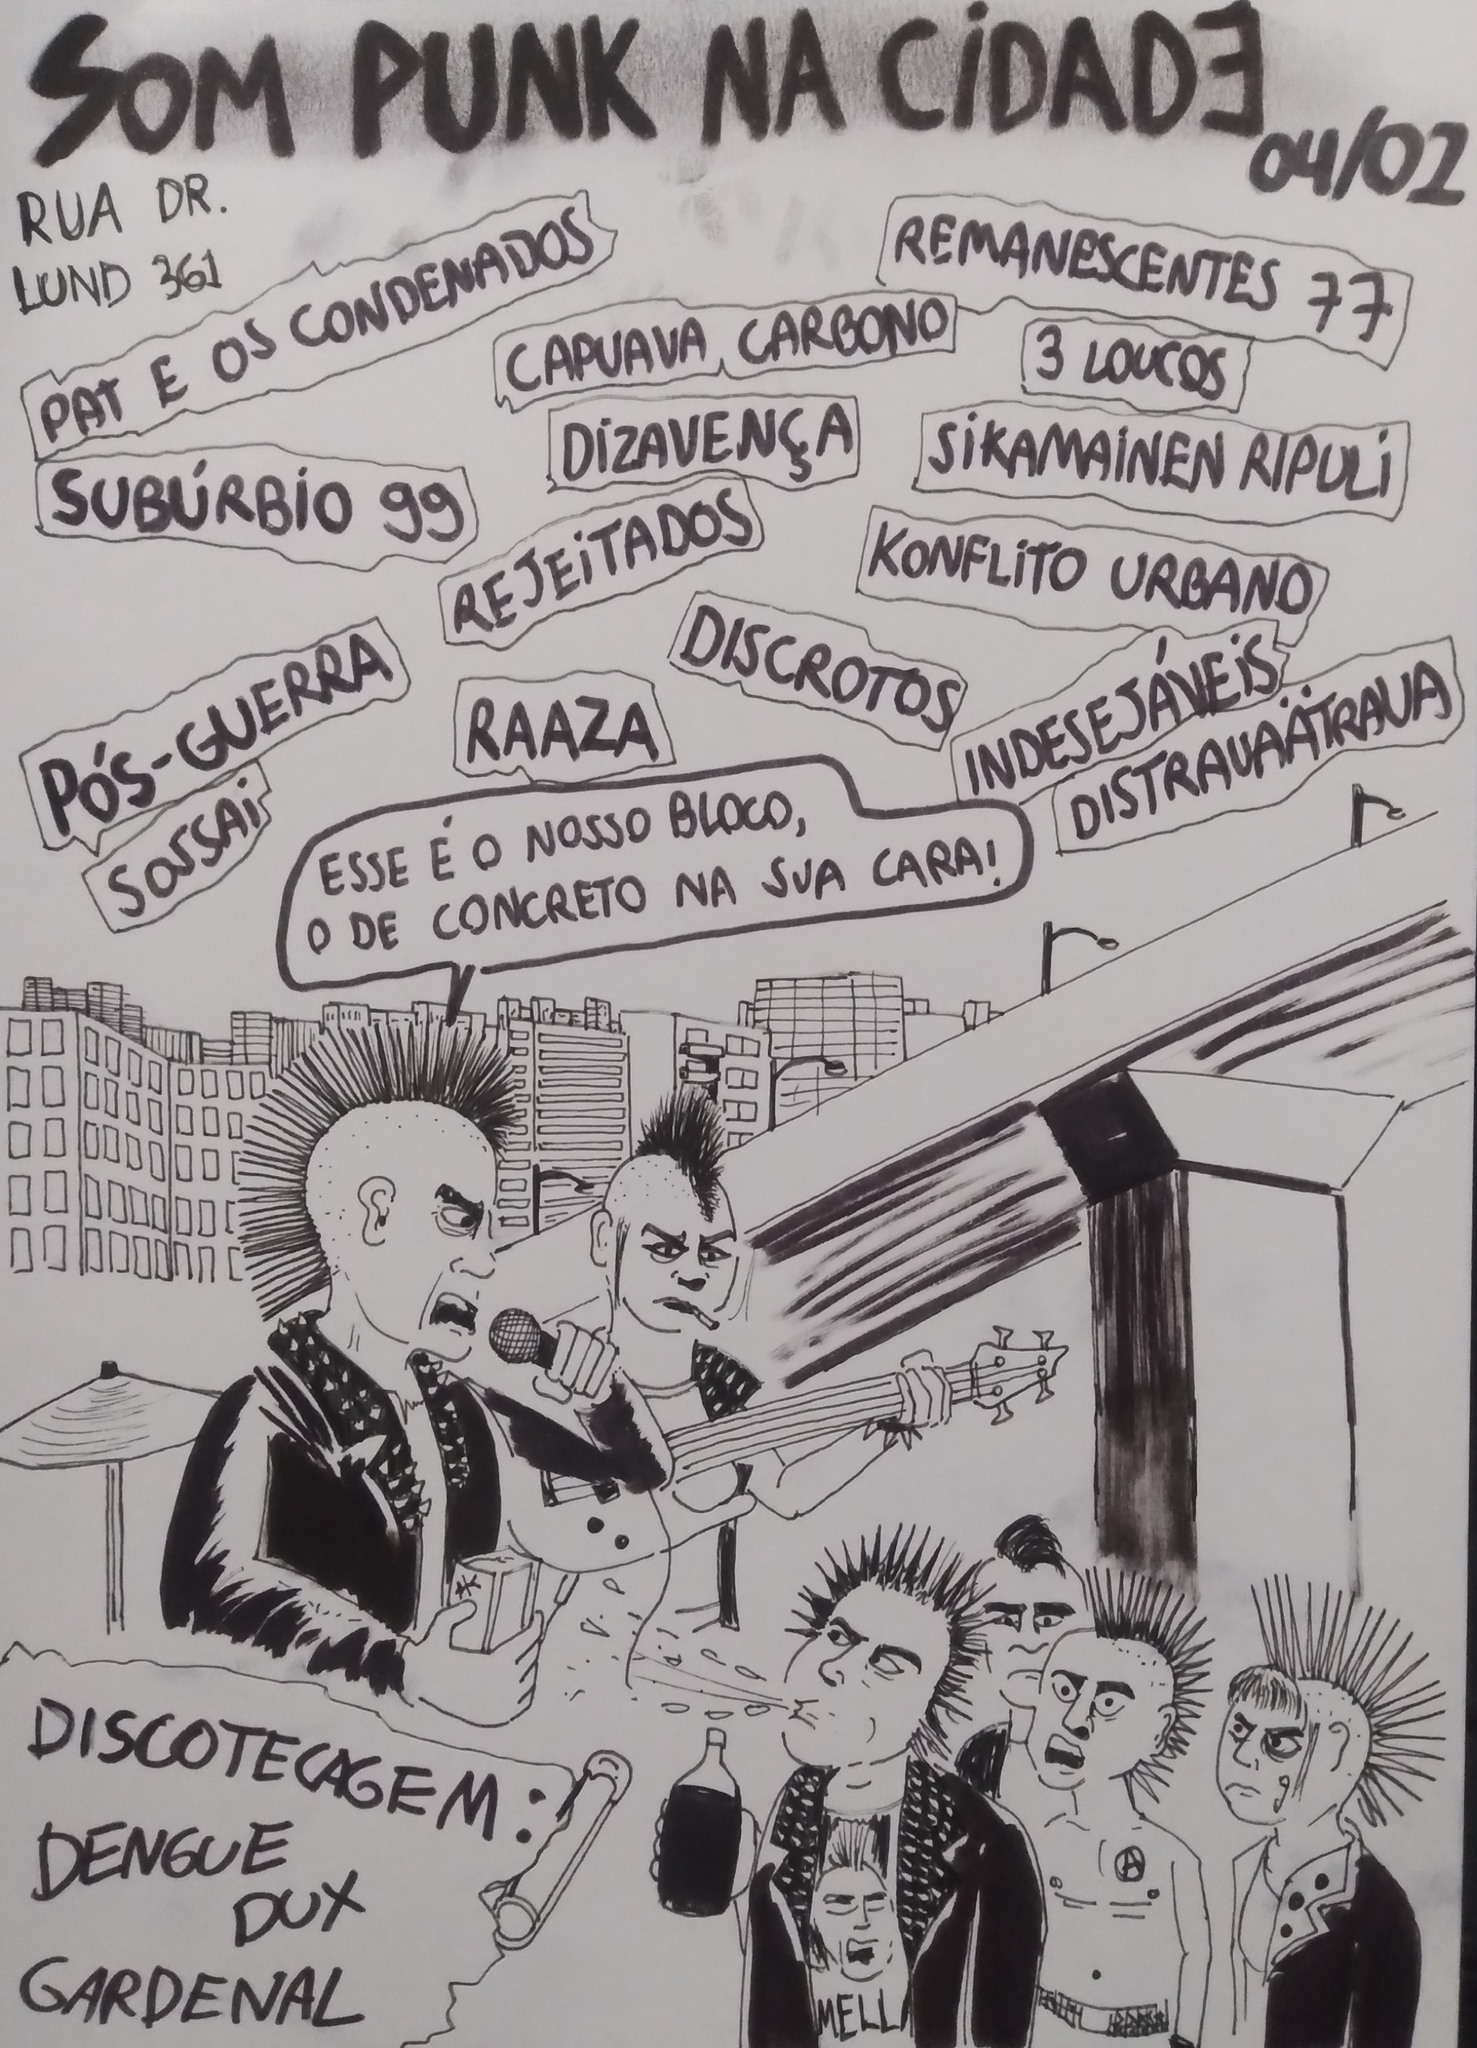 SOM PUNK NA CiDADE
04/02
RUA DR.
LUND 361
PAT E OS CONDENADOS
REMANESCENTES 77
CAPUAVA CARBONO
3 LOUCOS
DiZAVENÇA
SiKAMAiNEN RiPULi
SUBÚRBiO 99
REJEiTADOS
KONFLiTO URBANO
DISCROTOS
PÓS-GUERRA
RAAZA
INDESEJÁVEiS
DISTRAUAÄTRAUA
SOSSAi
ESSE É O NOSSO BLOCO,
O DE CONCRETO NA SUA CARA!
DISCOTECAGEM:
DENGUE
DUX
GARDENAL
MELL